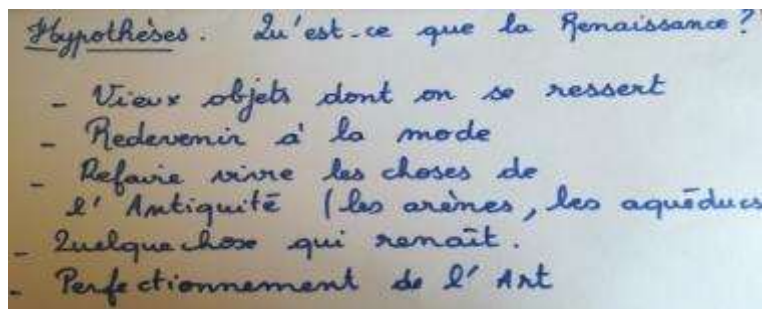 Hypothèses. Qu'est-ce que la Renaissance?
- Vieux objets dont on se ressert
- Redevenir à la mode
- Refaire vivre les choses de
l'Antiquité (les arènes, les aquéducs
- Quelque chose qui renaît.
- Perfectionnement de l'Art